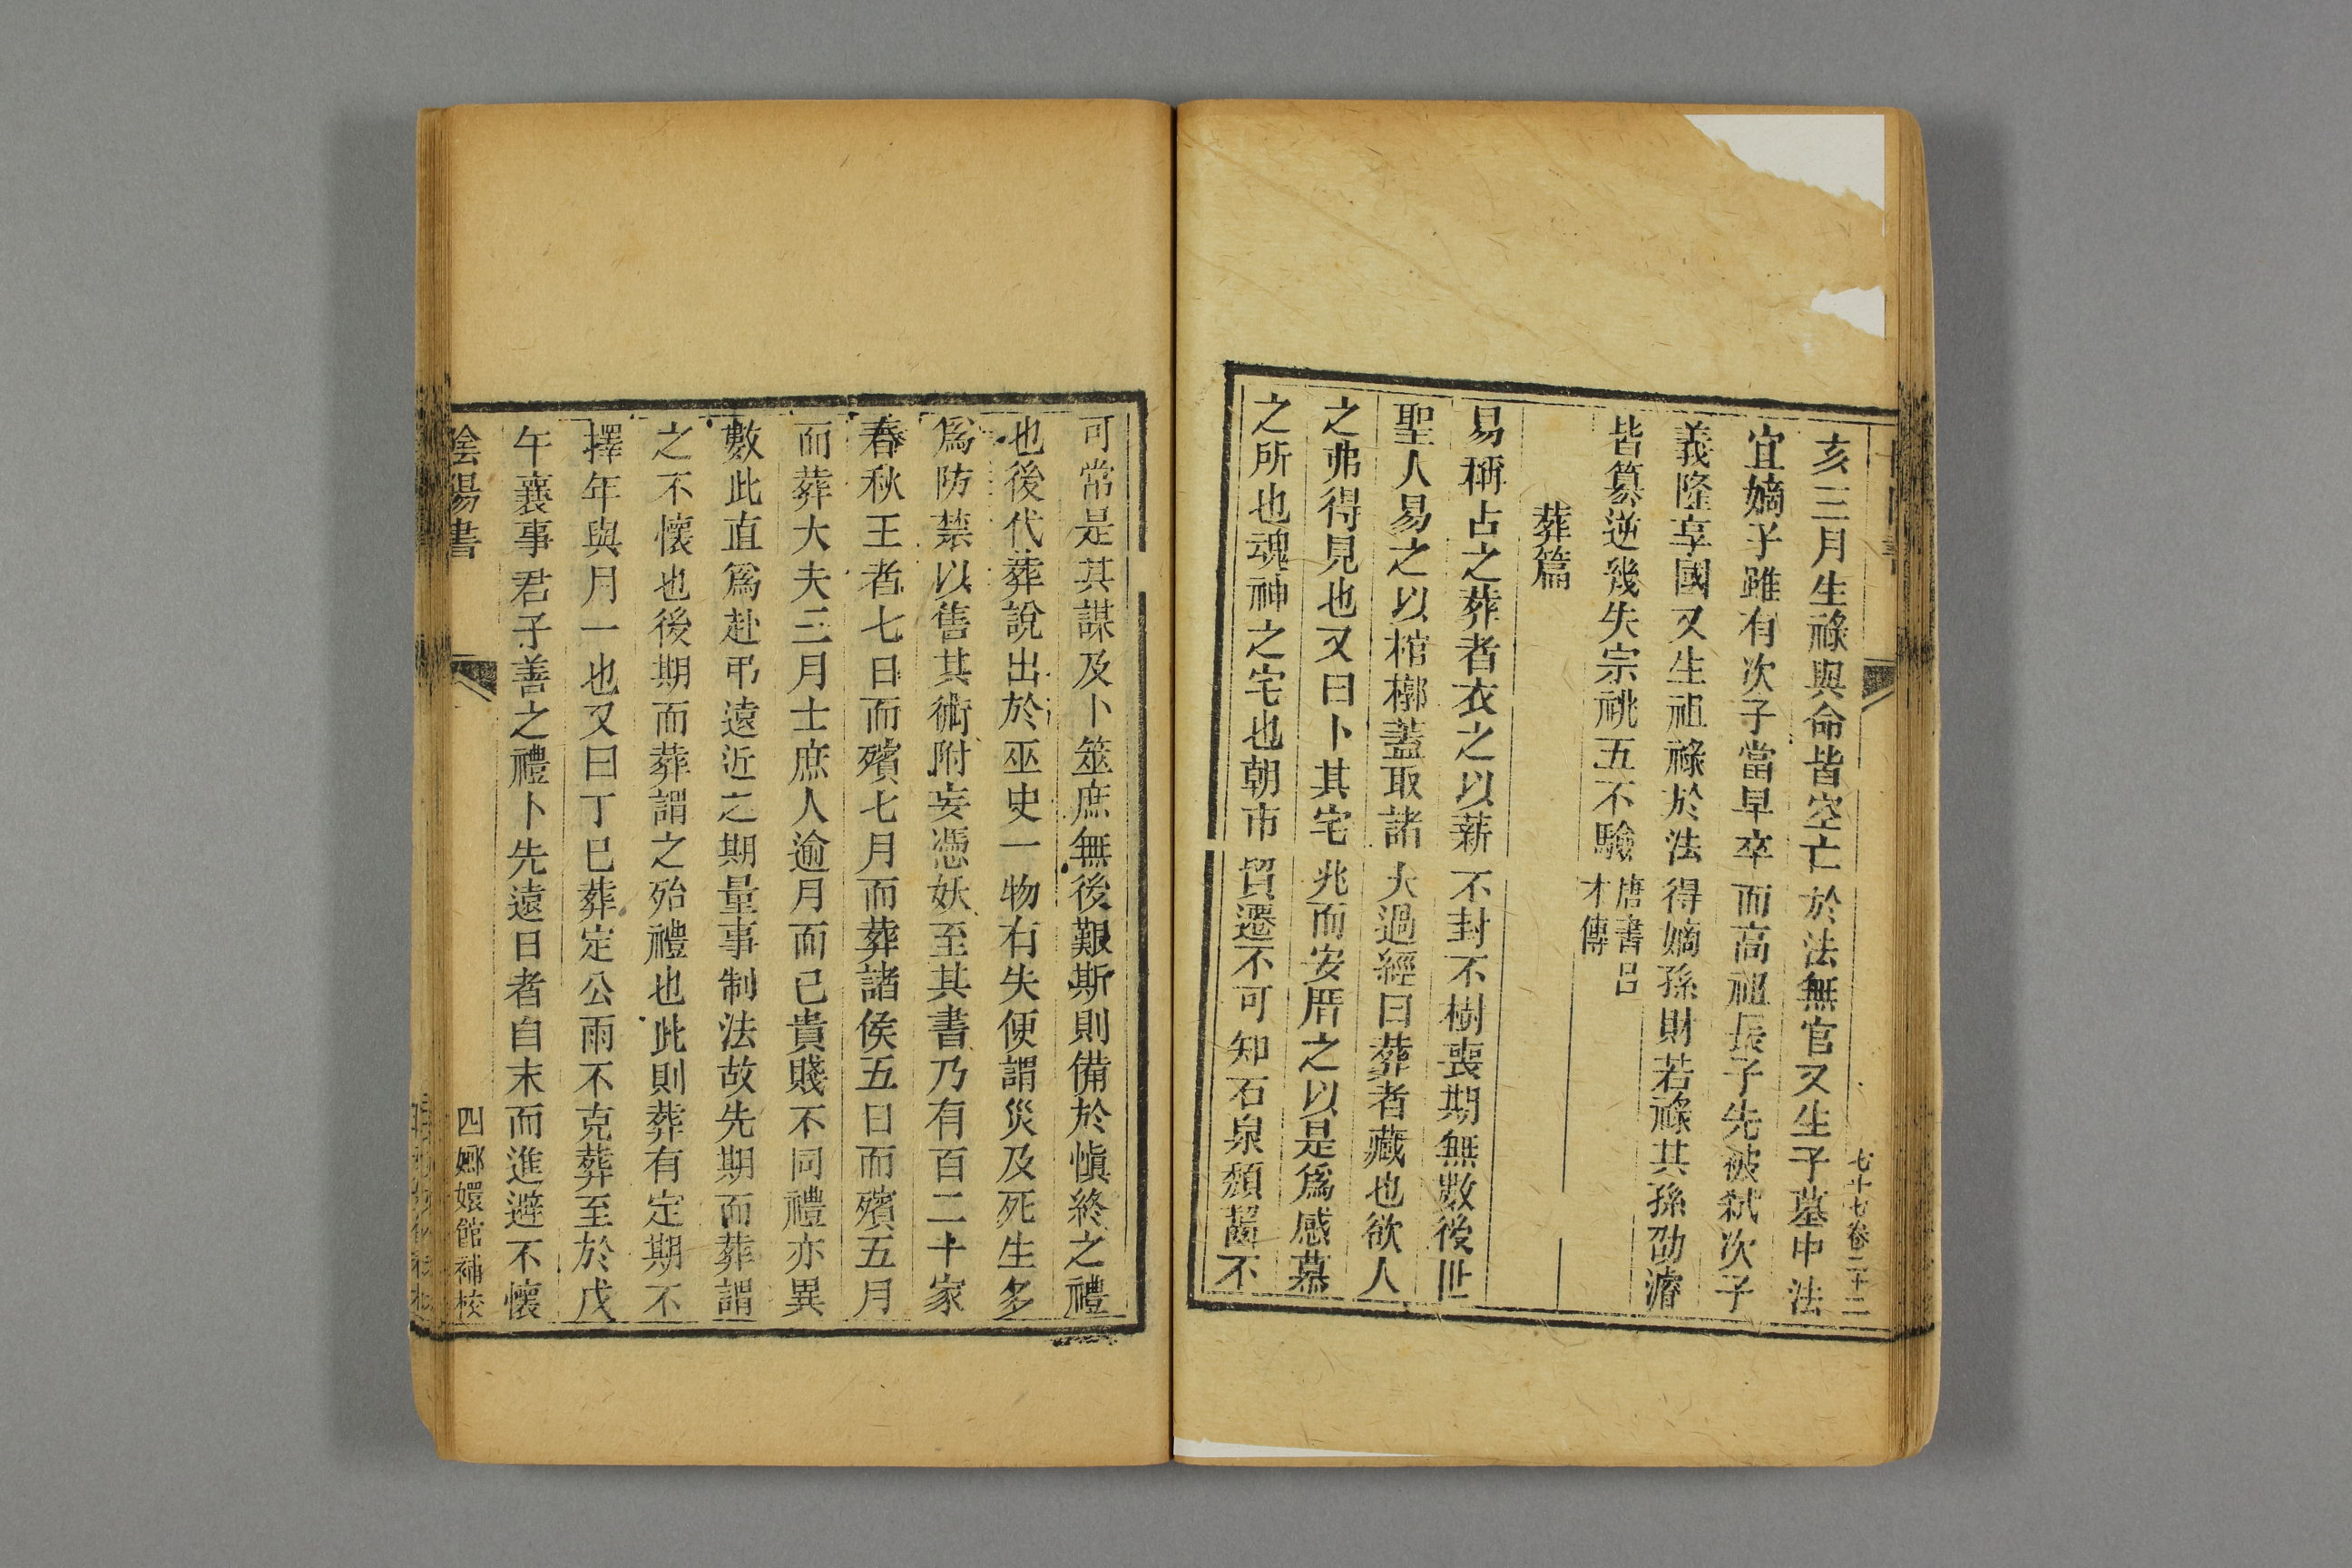 七十七卷二十二
亥三月生祿與命皆空亡於法無官又生子墓中法
宜嫡子雖有次子當早卒而高祖長子先被弑次子
義隆享國又生祖祿於法得嫡孫財若祿其孫劭濬
皆篡逆幾失宗祧五不驗唐書呂
才傳
葬篇
易稱古之葬者衣之以薪不封不樹喪期無數後世
聖人易之以棺槨蓋取諸大過經曰葬者藏也欲人
之弗得見也又曰卜其宅兆而安厝之以是爲感慕
之所也魂神之宅也朝市貿遷不可知石泉頹齧不
可常是其謀及卜筮庶無後艱斯則備於愼終之禮
也後代葬說出於巫史一物有失便謂災及死生多
爲防禁以售其術附妄憑妖至其書乃有百二十家
春秋王者七日而殯七月而葬諸侯五日而殯五月
而葬大夫三月士庶人逾月而已貴賤不同禮亦異
數此直爲赴弔遠近之期量事制法故先期而葬謂
之不懷也後期而葬謂之殆禮也此則葬有定期不
擇年與月一也又曰丁巳葬定公雨不克葬至於戊
午襄事君子善之禮卜先遠日者自末而進避不懷
陰陽書
四 嫏嬛館補校